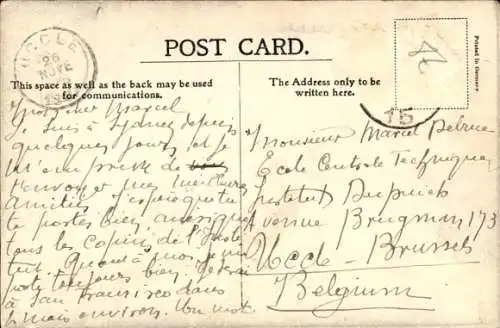 UCCLE
26
NOVE
POST CARD.
This space as well as the back may be used
for communications.
The Address only to be
written here.
Printed in Germany
15
Mon cher Marcel
Je suis à Sydney depuis
quelques jours et je
m'empresse de
t'envoyer mes meilleures
amitiés j'espère que tu
te portes bien, ainsi que
tous les copins de l'Insti
tut. Quant à moi je me
porte toujours bien. Je serai
à San Francisco dans
mois environ. Un mot
Monsieur Marcel
Ecole Centrale Technique
Institut Dupuich
Avenue Brugman, 173
Uccle - Brussels
Belgium